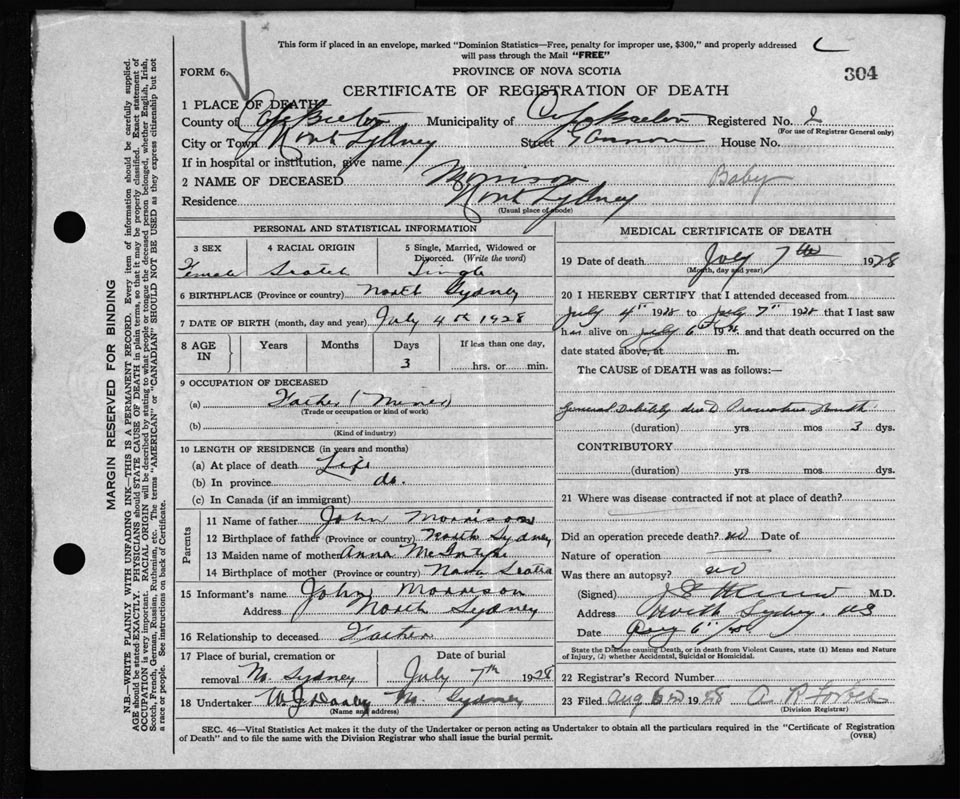 This form if placed in an envelope, marked "Dominion Statistics—Free, penalty for improper use, $300," and properly addressed
will pass through the Mail "FREE"
FORM 6.
PROVINCE OF NOVA SCOTIA
304
CERTIFICATE OF REGISTRATION OF DEATH
1 PLACE OF DEATH
County of Cape Breton Municipality of Cape Breton Registered No. 2
(For use of Registrar General only)
City or Town North Sydney Street House No.
If in hospital or institution, give name
2 NAME OF DECEASED Morrison Baby
Residence North Sydney
(Usual place of abode)
PERSONAL AND STATISTICAL INFORMATION
3 SEX 4 RACIAL ORIGIN 5 Single, Married, Widowed or Divorced. (Write the word)
Female Scotch Single
6 BIRTHPLACE (Province or country) North Sydney
7 DATE OF BIRTH (month, day and year) July 4th 1928
8 AGE IN Years Months Days If less than one day,
3 hrs. or min.
9 OCCUPATION OF DECEASED
(a) Father (Miner)
(Trade or occupation or kind of work)
(b)
(Kind of industry)
10 LENGTH OF RESIDENCE (in years and months)
(a) At place of death Life
(b) In province do.
(c) In Canada (if an immigrant)
Parents
11 Name of father John Morrison
12 Birthplace of father (Province or country) North Sydney
13 Maiden name of mother Anna McIntyre
14 Birthplace of mother (Province or country) Nova Scotia
15 Informant's name John Morrison
Address North Sydney
16 Relationship to deceased Father
17 Place of burial, cremation or removal Date of burial
No. Sydney July 7th 1928
18 Undertaker No Sydney
(Name and address)
MEDICAL CERTIFICATE OF DEATH
19 Date of death July 7th 1928
(Month, day and year)
20 I HEREBY CERTIFY that I attended deceased from
July 4th 1928 to July 7th 1928 that I last saw
her alive on July 6th 19 and that death occurred on the
date stated above, at m.
The CAUSE of DEATH was as follows:—
General Debility due to Premature birth
(duration) yrs. mos 3 dys.
CONTRIBUTORY
(duration) yrs. mos. dys.
21 Where was disease contracted if not at place of death?
Did an operation precede death? no Date of
Nature of operation
Was there an autopsy? no
(Signed) M.D.
Address North Sydney. NS
Date Aug 6th
State the Disease causing Death, or in death from Violent Causes, state (1) Means and Nature
of Injury, (2) whether Accidental, Suicidal or Homicidal.
22 Registrar's Record Number
23 Filed Aug 6 1928 A. R. Forbes
(Division Registrar)
SEC. 46—Vital Statistics Act makes it the duty of the Undertaker or person acting as Undertaker to obtain all the particulars required in the "Certificate of Registration
of Death" and to file the same with the Division Registrar who shall issue the burial permit.
(OVER)
MARGIN RESERVED FOR BINDING
N.B.—WRITE PLAINLY WITH UNFADING INK—THIS IS A PERMANENT RECORD. Every item of information should be carefully supplied.
AGE should be stated EXACTLY. PHYSICIANS should STATE CAUSE OF DEATH in plain terms, so that it may be properly classified. Exact statement of
OCCUPATION is very important. RACIAL ORIGIN will be described by stating to what people or tongue the deceased person belonged, whether English, Irish,
Scotch, French, German, Russian, Ruthenian, etc. The terms "AMERICAN" or "CANADIAN" SHOULD NOT BE USED as they express citizenship but not
a race or people. See instructions on back of Certificate.